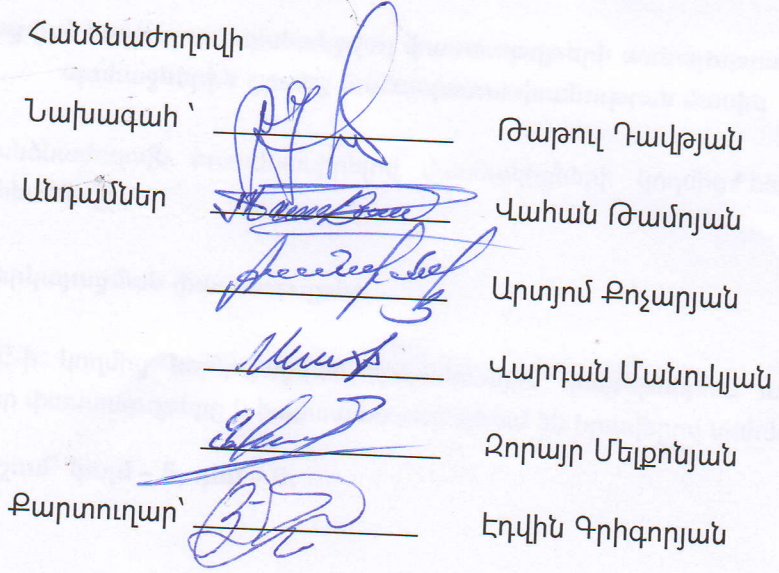 Հանձնաժողովի
Նախագահ ՝ Թաթուլ Դավթյան
Անդամներ Վահան Թամոյան
Արտյոմ Քոչարյան
Վարդան Մանուկյան
Զորայր Մելքոնյան
Քարտուղար՝ Էդվին Գրիգորյան